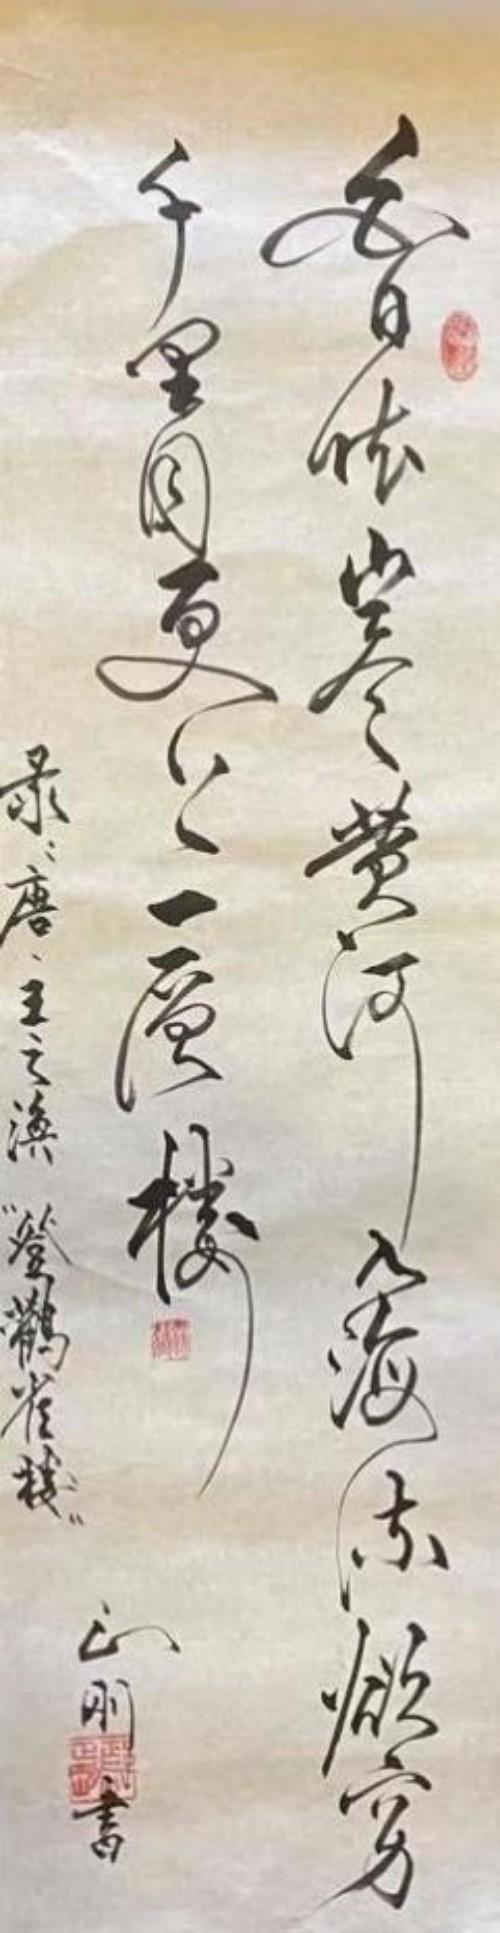 白日依山尽黄河入海流欲穷
千里目更上一層楼
录:唐、王之涣"登鸛雀楼"
正刚書